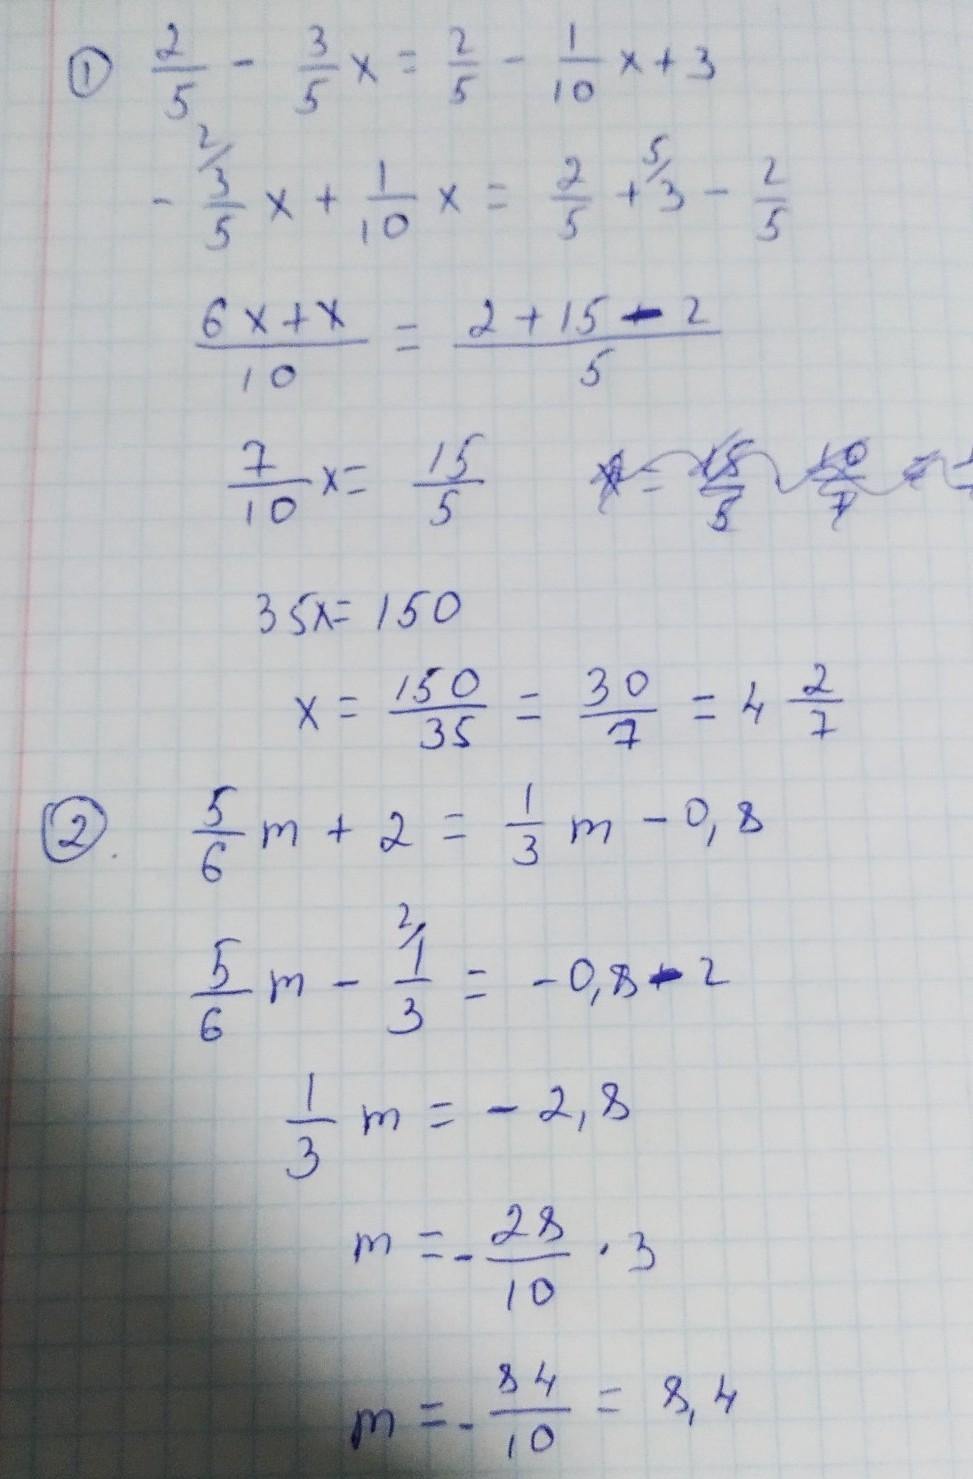 ① 2/5 - 3/5 x = 2/5 - 1/10 x + 3
- 2/ 3/5 x + 1/10 x = 2/5 + 5/ 3 - 2/5
6x+x/10 = 2+15-2/5
7/10 x = 15/5 x = 15/5 10/7 =
35x = 150
x = 150/35 = 30/7 = 4 2/7
② . 5/6 m + 2 = 1/3 m - 0,8
5/6 m - 2/ 1/3 = -0,8 - 2
1/3 m = - 2,8
m = - 28/10 · 3
m = - 84/10 = 8,4